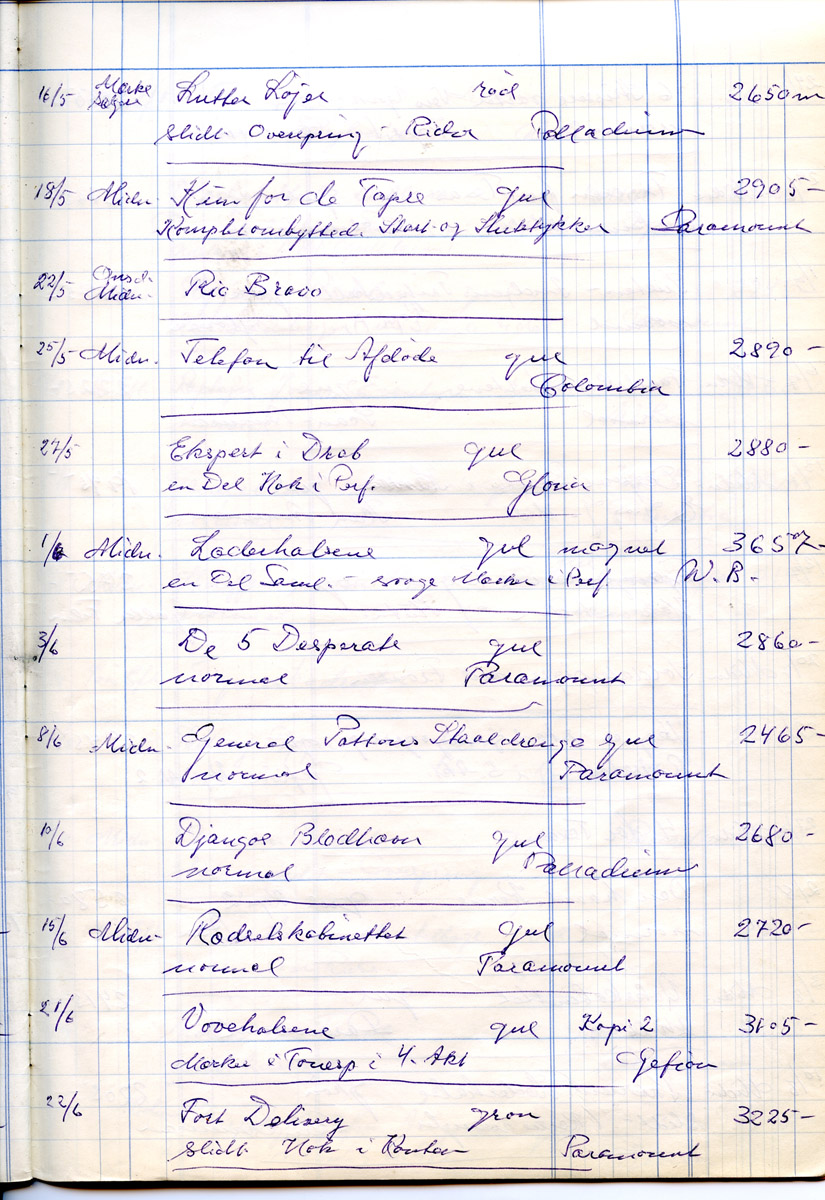 16/5 Mørke rød 2650 m
Slidt Overspring - Ridser Palladium
18/5 Midn. Kun for de Tapre gul 2905-
Komplet ombyttede Start og Slutstykker Paramount
22/5 Onsd. Midn. Rio Bravo
25/5 Midn. Telefon til Afdøde gul 2890-
Colombia
27/5 Ekspert i Drab gul 2880-
en Del Hak i Perf. Gloria
1/6 Midn. Laderhalsene gul magnet 3650-
en Del Saml. - svage Mærker i Perf. W.B.
3/6 De 5 Desperate gul 2860-
normal Paramount
8/6 Midn. General Pattons Staaldrenge gul 2465-
normal Paramount
10/6 Djangos Blodhævn gul 2680-
normal Palladium
15/6 Midn. Rædselskabinettet gul 2720-
normal Paramount
21/6 Vovehalsene gul Kopi 2 3105-
Mærker i Tonesp i 4. Akt Gefion
22/6 Fort Delivery grøn 3225-
Slidt Hak i Kanten Paramount